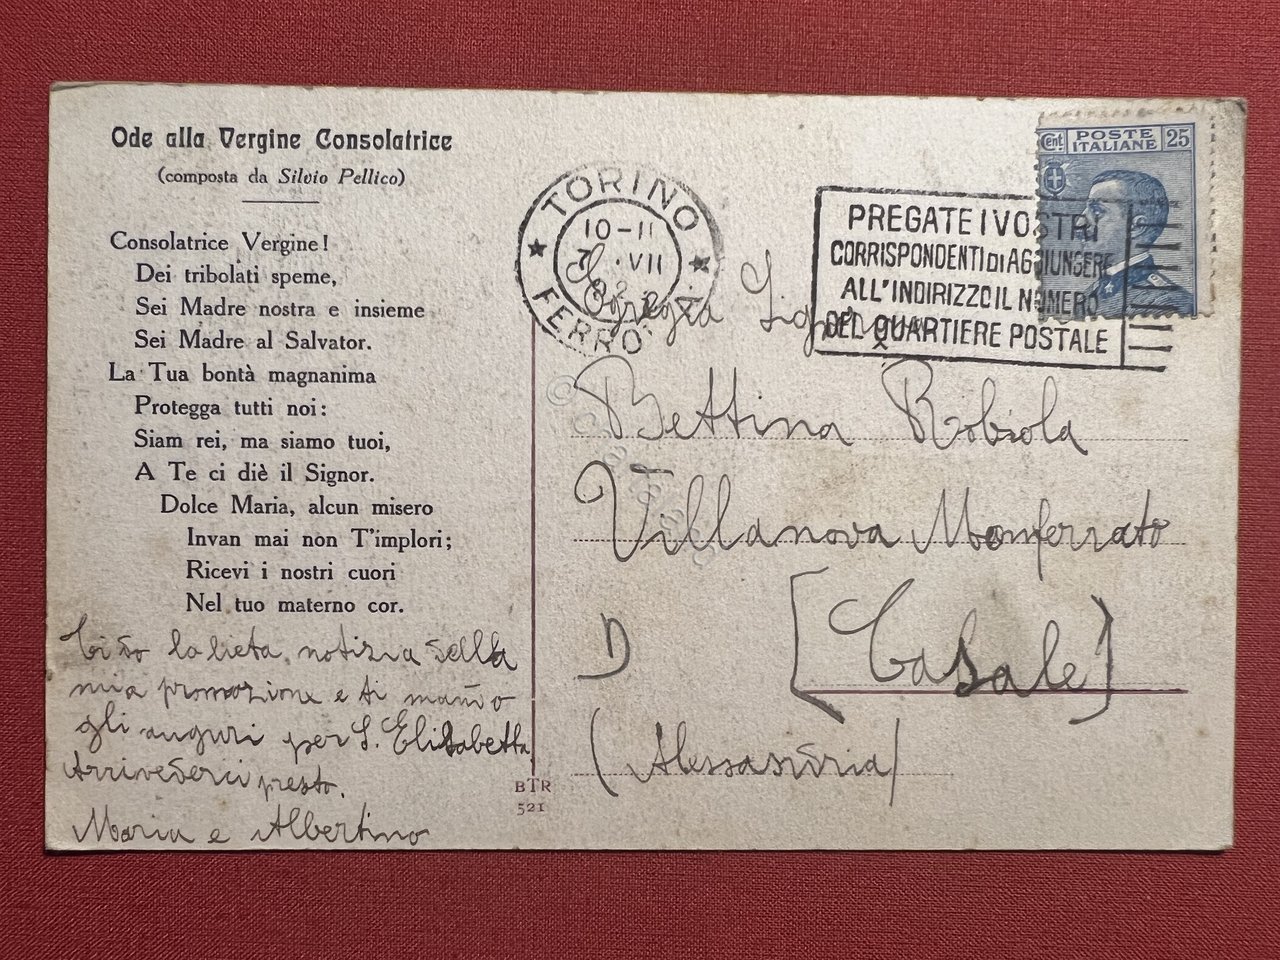 Ode alla Vergine Consolatrice
(composta da Silvio Pellico)
Consolatrice Vergine!
Dei tribolati speme,
Sei Madre nostra e insieme
Sei Madre al Salvator.
La Tua bontà magnanima
Protegga tutti noi:
Siam rei, ma siamo tuoi,
A Te ci diè il Signor.
Dolce Maria, alcun misero
Invan mai non T'implori;
Ricevi i nostri cuori
Nel tuo materno cor.
Ti do la lieta notizia della
mia promozione e ti mando
gli auguri per S. Elisabetta
Arrivederci presto.
Maria e Albertino
BTR
521
TORINO
10-11
7 VII
FERROVIA
PREGATE I VOSTRI
CORRISPONDENTI DI AGGIUNGERE
ALL'INDIRIZZO IL NUMERO
DEL QUARTIERE POSTALE
Cent. POSTE ITALIANE 25
Egregia
Bettina Robiola
Villanova Monferrato
D [Casale]
(Alessandria)